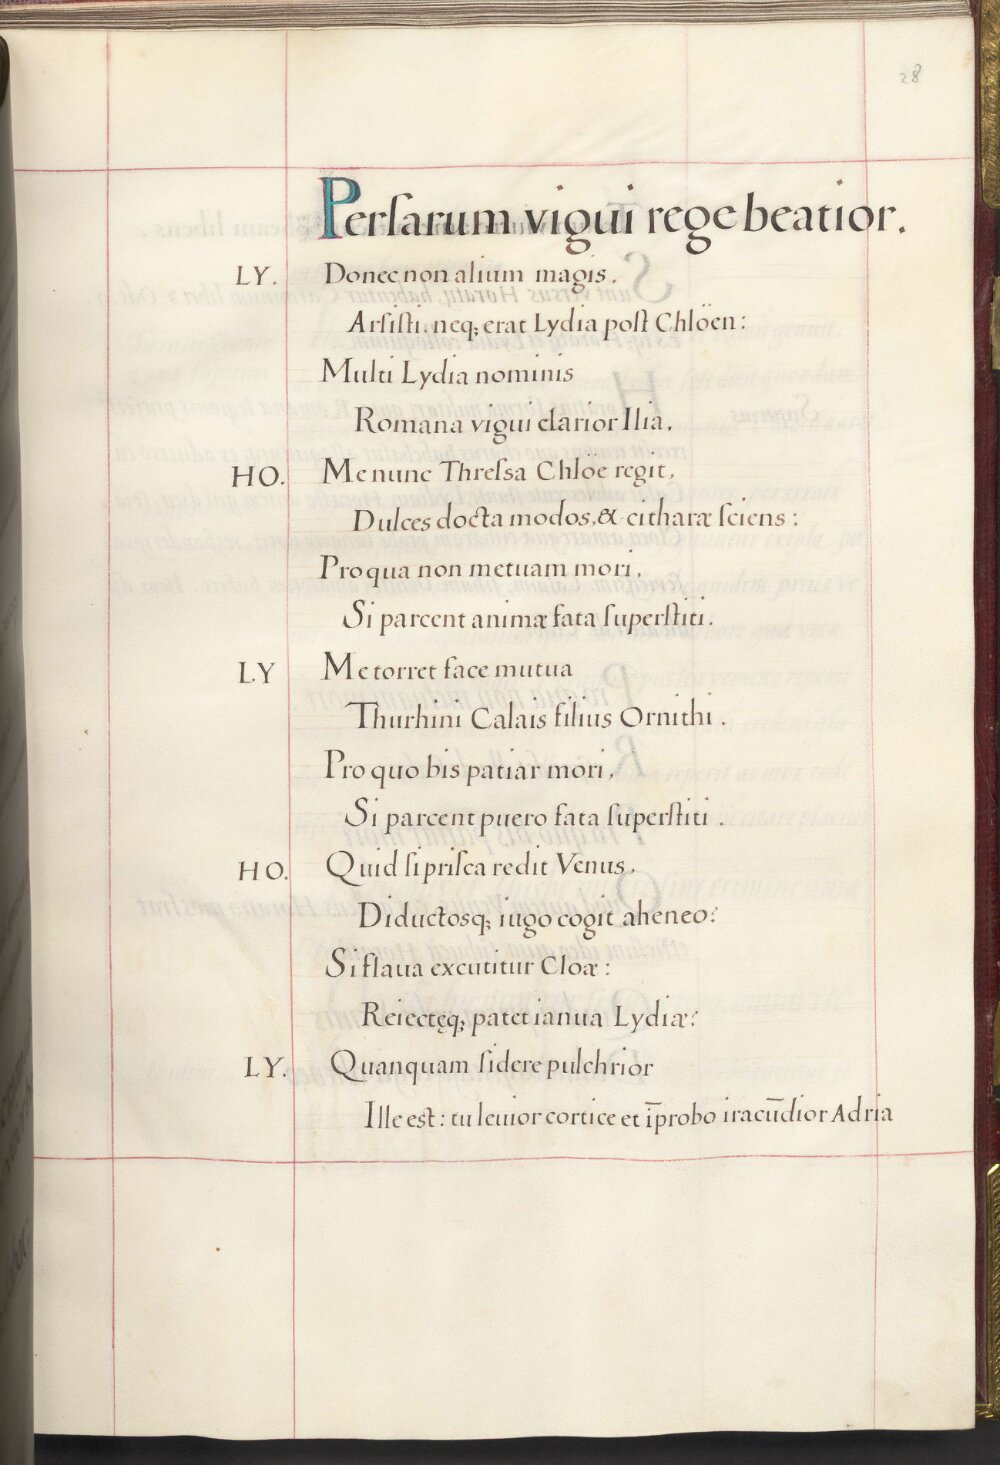 28
Persarum vigui rege beatior.
LY. Donec non alium magis.
Arsisti, neq; erat Lydia post Chlöen:
Multi Lydia nominis
Romana vigui clarior Ilia.
HO. Me nunc Thressa Chlöe regit,
Dulces docta modos, & citharæ sciens:
Pro qua non metuam mori,
Si parcent animæ fata superstiti.
LY Me torret face mutua
Thurhini Calais filius Ornithi.
Pro quo bis patiar mori,
Si parcent puero fata superstiti.
HO. Quid si prisca redit Venus,
Diductosq; iugo cogit aheneo?
Si flaua excutitur Cloæ:
Reiectęq; patet ianua Lydiæ?
LY. Quanquam sidere pulchrior
Ille est: tu leuior cortice et ip̄robo iracūdior Adria